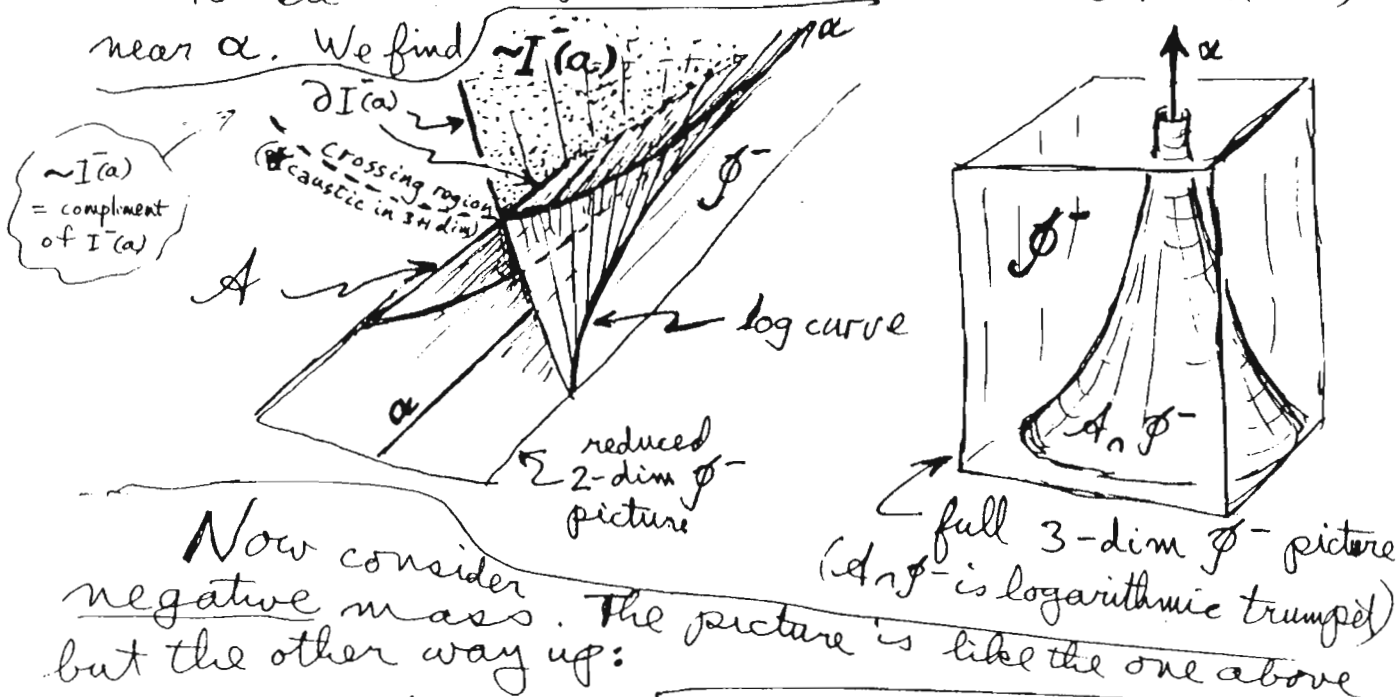 near α. We find
~I⁻(a)
α
∂I⁻(a)
crossing region
(caustic in 3+1 dim)
~I⁻(a)
= compliment
of I⁻(a)
A
𝓘⁻
log curve
α
reduced
2-dim 𝓘⁻
picture
α
𝓘⁻
A∩𝓘⁻
full 3-dim 𝓘⁻ picture
(A∩𝓘⁻ is logarithmic trumpet)
Now consider
negative mass. The picture is like the one above
but the other way up: